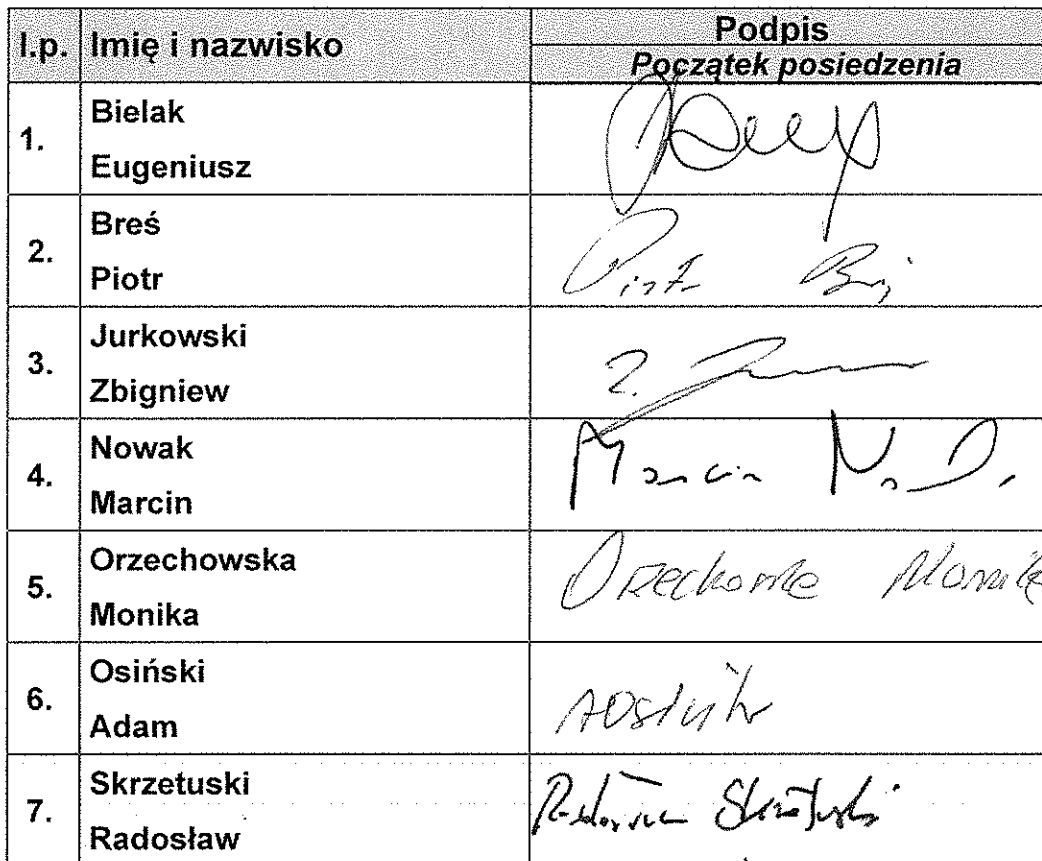 l.p. Imię i nazwisko Podpis
Początek posiedzenia
1. Bielak
Eugeniusz
2. Breś
Piotr
Piotr
3. Jurkowski
Zbigniew
Z.
4. Nowak
Marcin
Marcin N.
5. Orzechowska
Monika
Orzechowska Monika
6. Osiński
Adam
7. Skrzetuski
Radosław
Radosław Skrzetuski